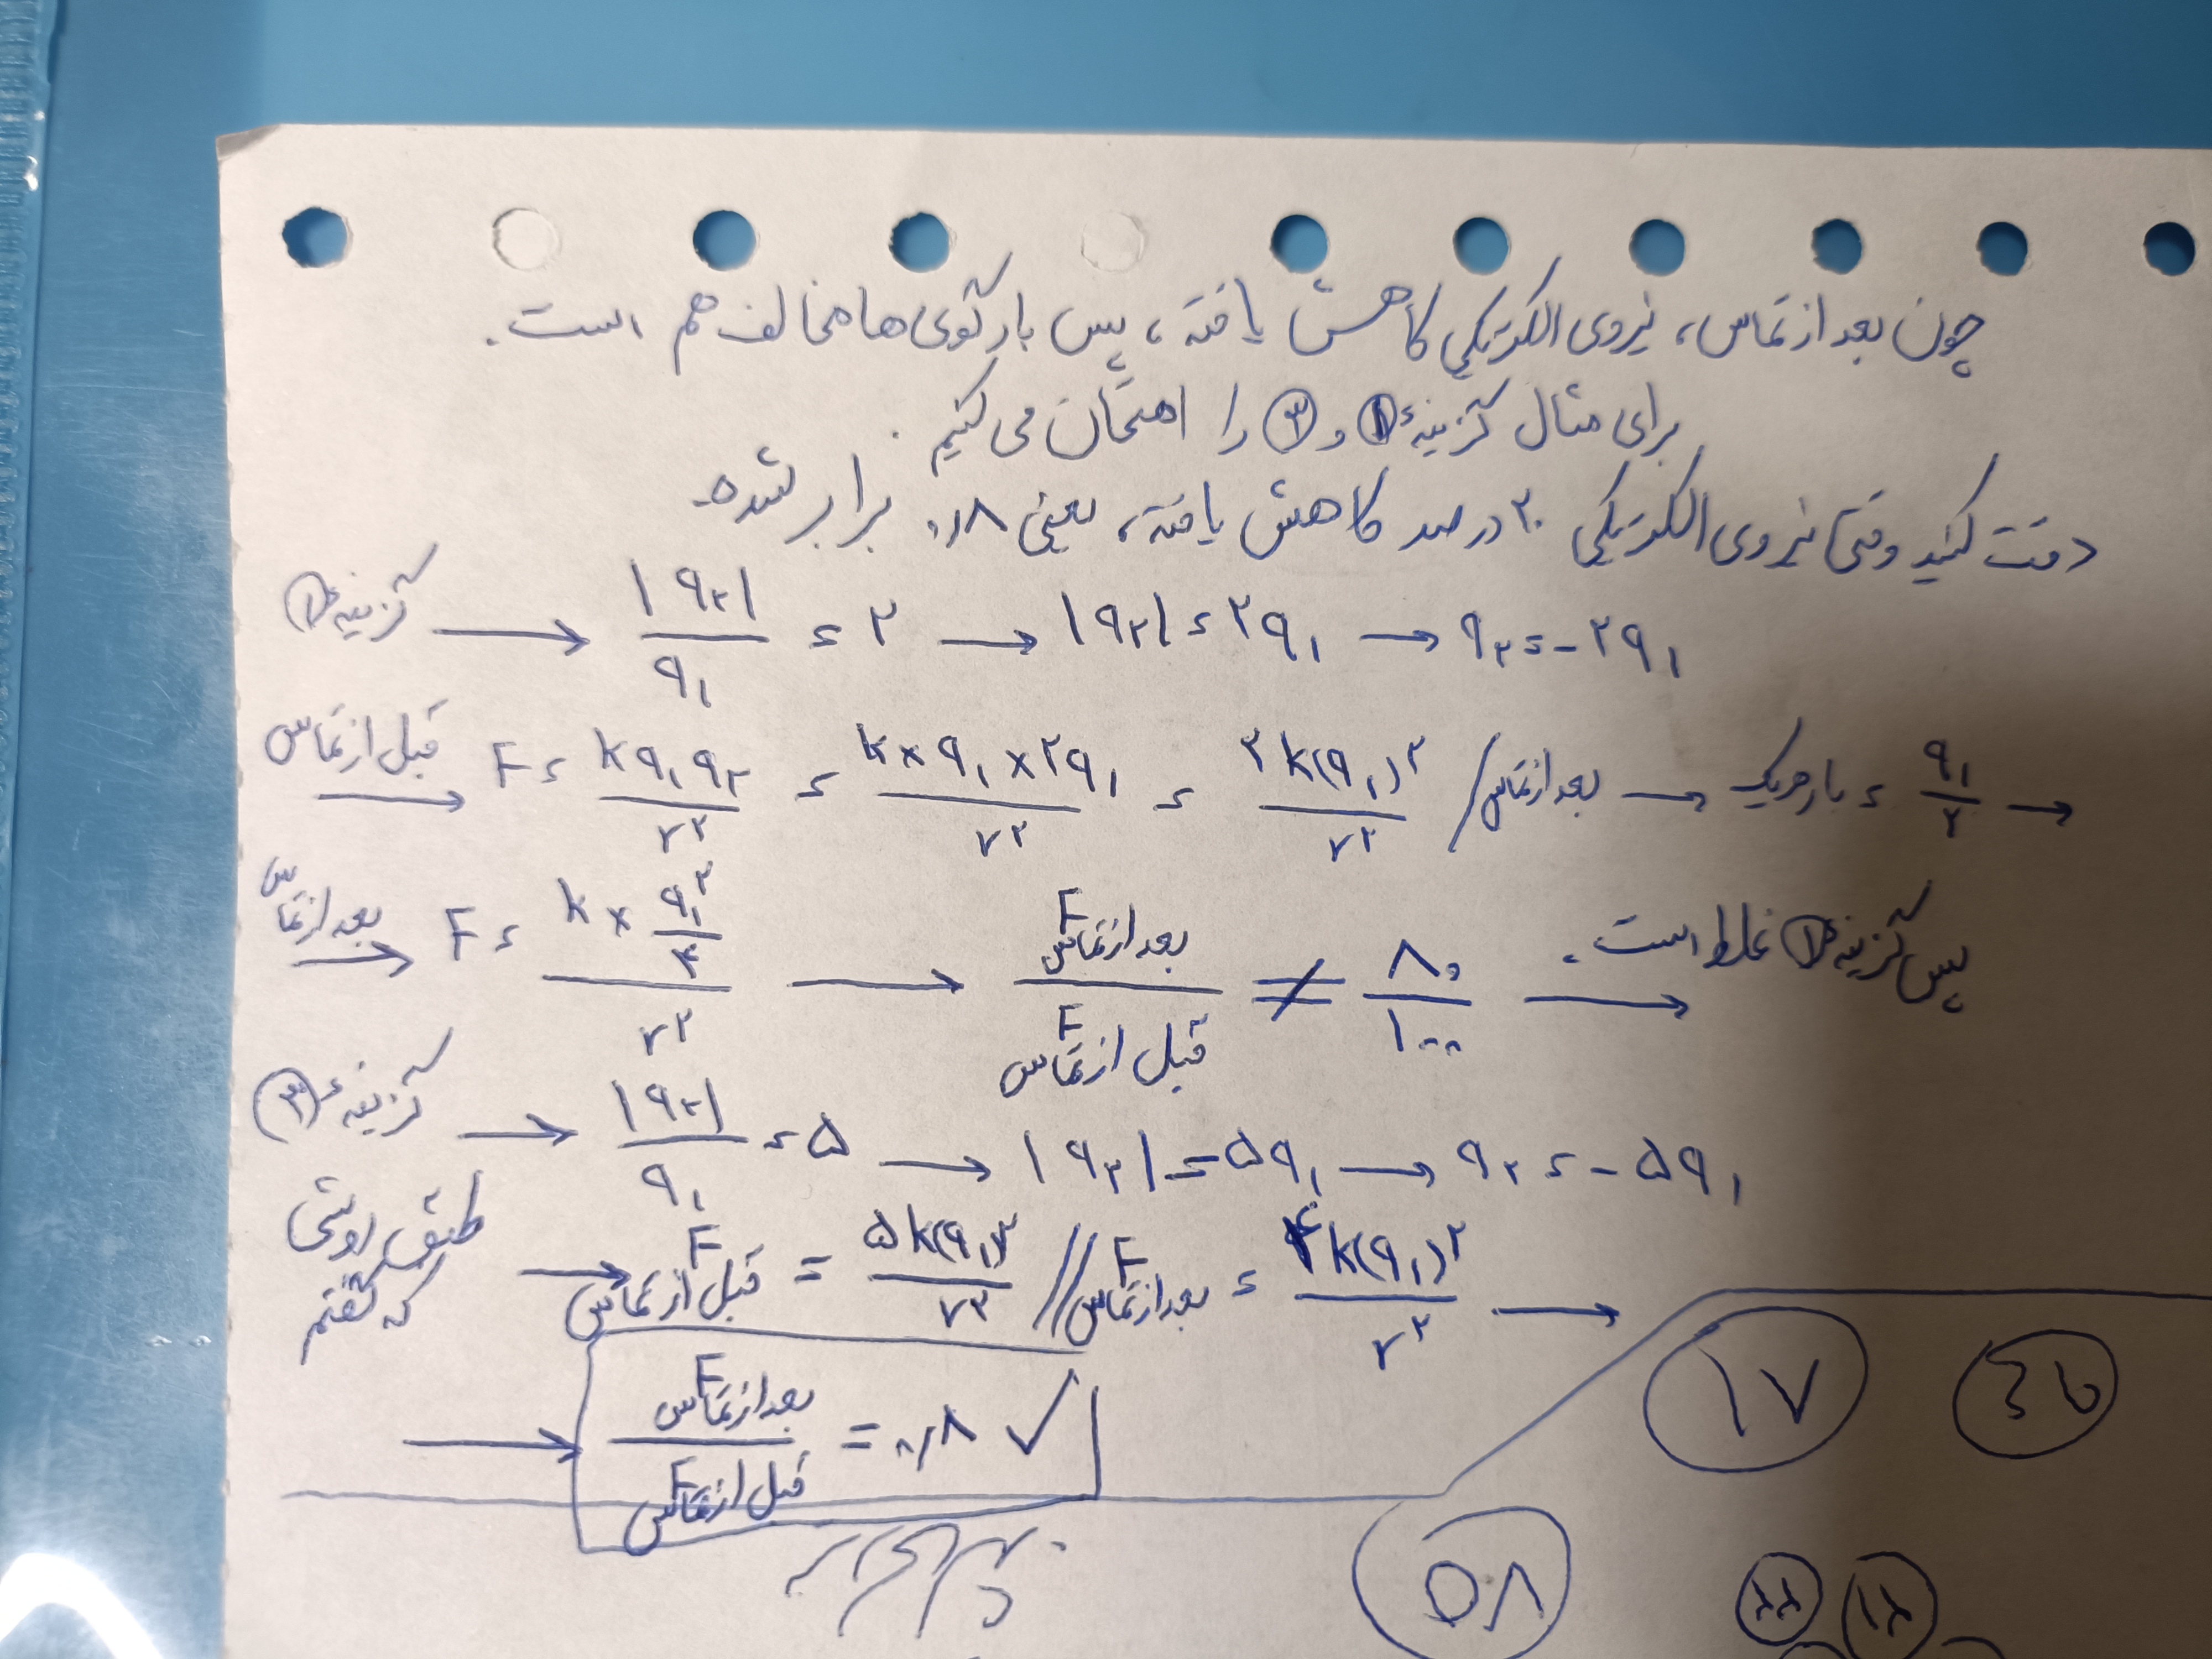 چون بعد از تماس، نیروی الکتریکی کاهش یافته، پس بار گوی ها مخالف هم است.
برای مثال گزینهٔ ① و ③ را امتحان می کنیم.
دقت کنید وقتی نیروی الکتریکی ۲۰ درصد کاهش یافته، یعنی ۰٫۸ برابر شده
گزینهٔ ① → |q۲| / q۱ = ۲ → |q۲| = ۲q۱ → q۲ = -۲q۱
قبل از تماس → F = kq۱q۲ / r۲ = k×q۱×۲q۱ / r۲ = ۲k(q۱)۲ / r۲ / بعد از تماس → بار هر یک = q۱ / ۲ →
بعد از تماس → F = k × q۱۲/۴ / r۲ → F بعد از تماس / F قبل از تماس ≠ ۸۰ / ۱۰۰ → پس گزینهٔ ① غلط است.
گزینهٔ ③ → |q۲| / q۱ = ۵ → |q۲| = ۵q۱ → q۲ = -۵q۱
طبق روشی که گفتم → F قبل از تماس = ۵k(q۱)۲ / r۲ // F بعد از تماس = ۴k(q۱)۲ / r۲ →
→ F بعد از تماس / F قبل از تماس = ۰٫۸ ✓
۱۷
۵۸